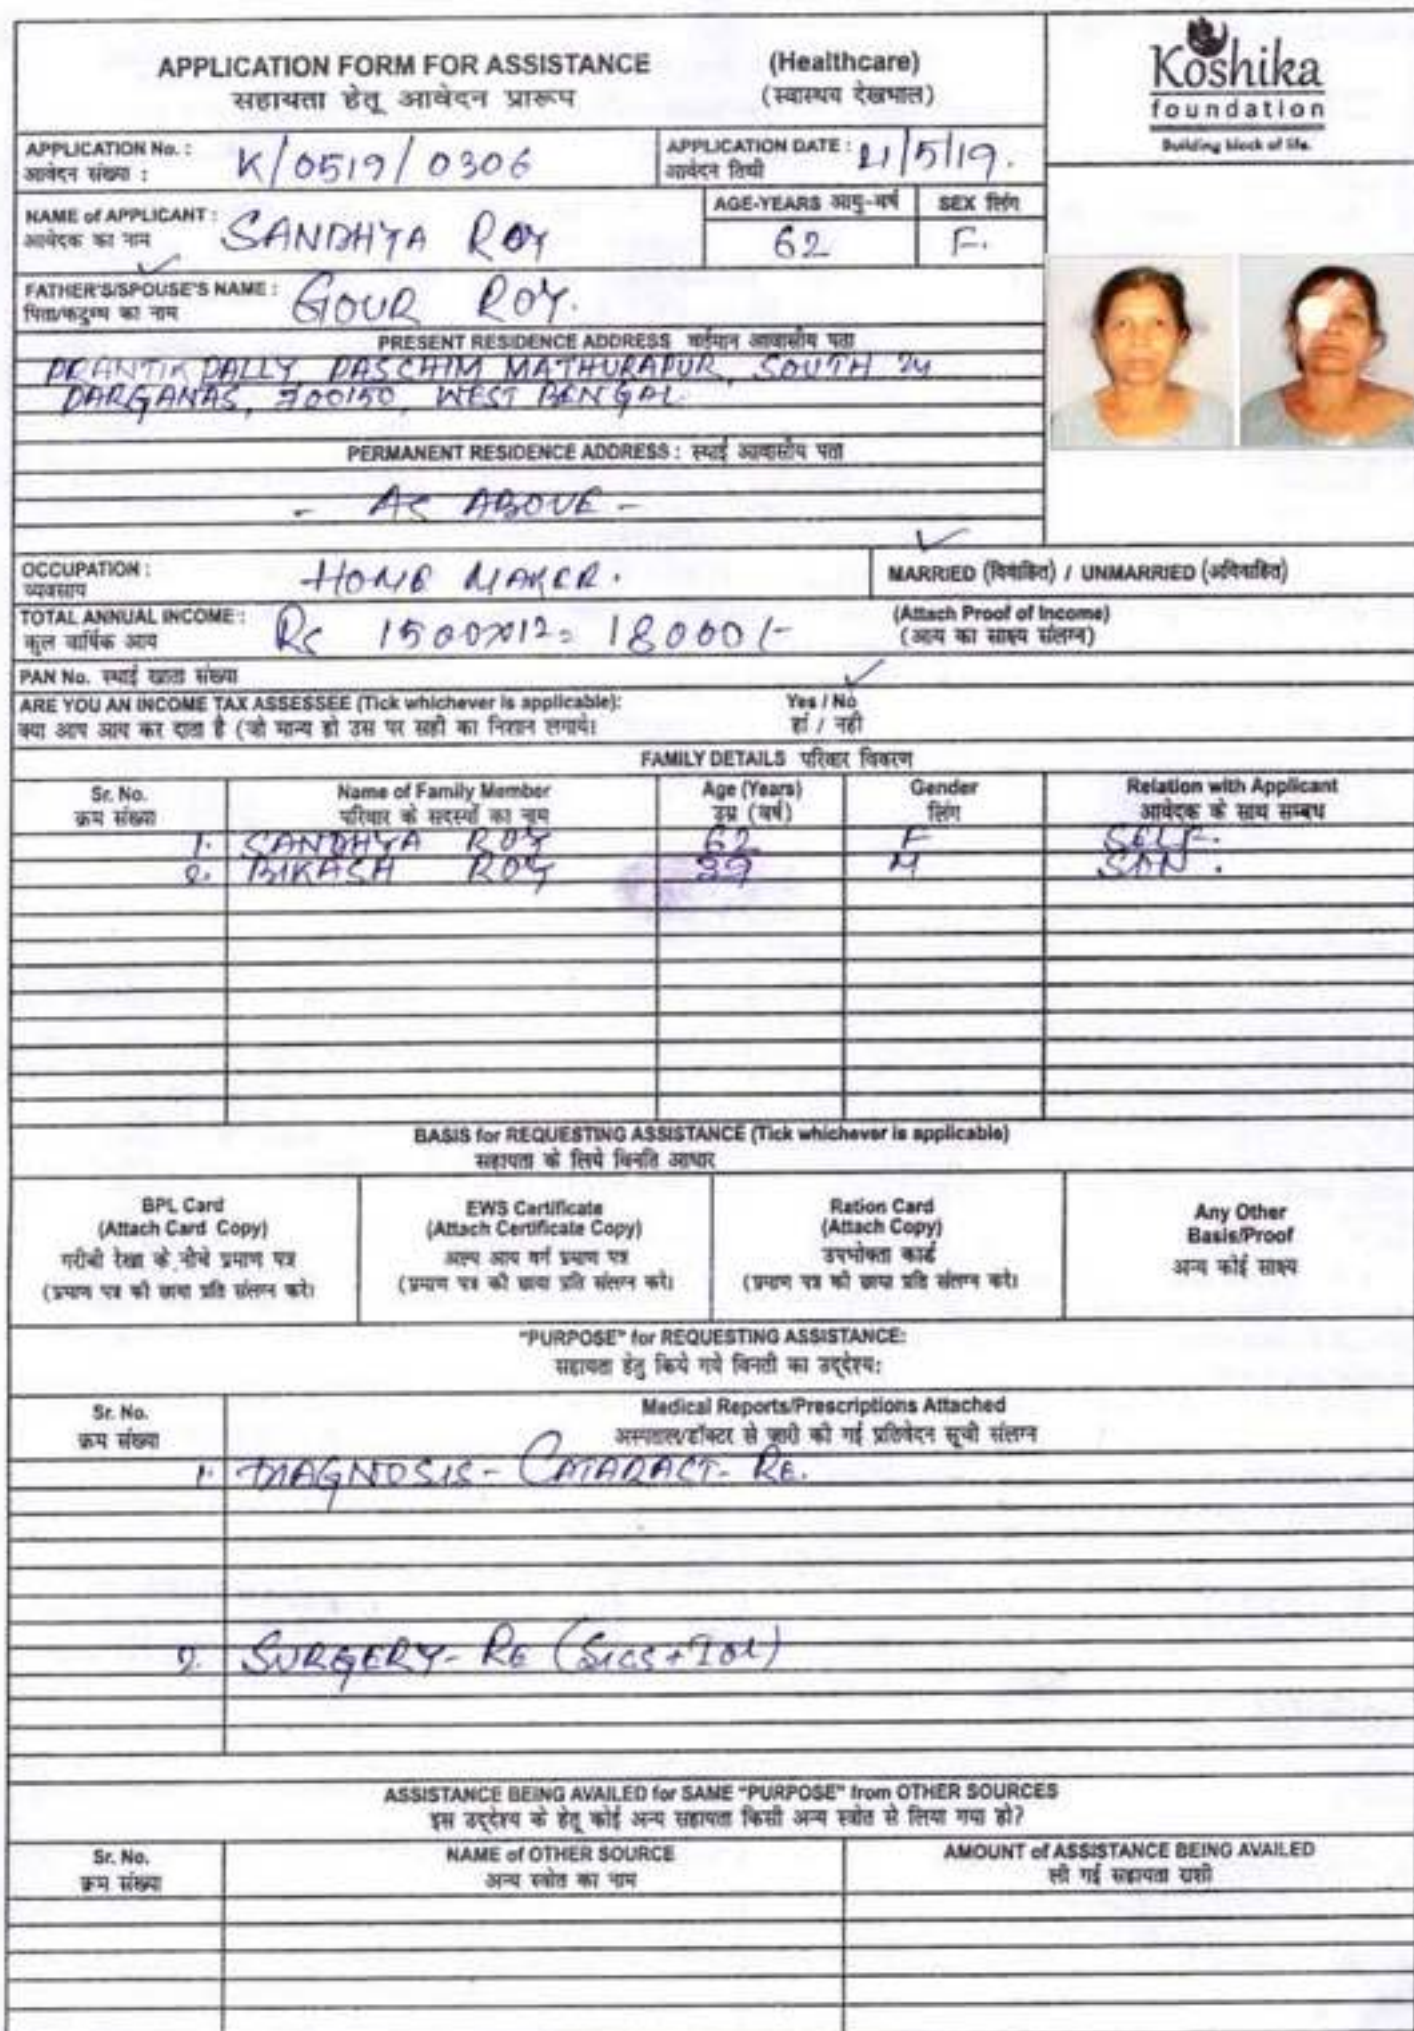 APPLICATION FORM FOR ASSISTANCE (Healthcare)
सहायता हेतू आवेदन प्रारूप (स्वास्थय देखभाल)
Koshika
foundation
Building block of life.
APPLICATION No. : K/0519/0306
आवेदन संख्या :
APPLICATION DATE : 21/5/19.
आवेदन तिथी
NAME of APPLICANT : SANDHYA ROY
आवेदक का नाम
AGE-YEARS आयु-वर्ष
62
SEX लिंग
F.
FATHER'S/SPOUSE'S NAME : GOUR ROY.
पिता/कटुम्ब का नाम
PRESENT RESIDENCE ADDRESS वर्तमान आवासीय पता
PRANTIK PALLY PASCHIM MATHURAPUR, SOUTH 24
PARGANAS, 700150, WEST BENGAL
PERMANENT RESIDENCE ADDRESS : स्थाई आवासीय पता
- AS ABOVE -
OCCUPATION : HOME MAKER.
व्यवसाय
MARRIED (विवाहित) / UNMARRIED (अविवाहित)
TOTAL ANNUAL INCOME : Rs 1500x12= 18000/-
कुल वार्षिक आय
(Attach Proof of Income)
(आय का साक्ष्य संलग्न)
PAN No. स्थाई खाता संख्या
ARE YOU AN INCOME TAX ASSESSEE (Tick whichever is applicable): Yes / No
क्या आप आय कर दाता है (जो मान्य हो उस पर सही का निशान लगाये। हां / नही
FAMILY DETAILS परिवार विवरण
Sr. No. Name of Family Member Age (Years) Gender Relation with Applicant
क्रम संख्या परिवार के सदस्यों का नाम उम्र (वर्ष) लिंग आवेदक के साथ सम्बध
1. SANDHYA ROY 62 F SELF.
2. BIKASH ROY 39 M SON.
BASIS for REQUESTING ASSISTANCE (Tick whichever is applicable)
सहायता के लिये विनति आधार
BPL Card
(Attach Card Copy)
गरीबी रेखा के नीचे प्रमाण पत्र
(प्रमाण पत्र की छाया प्रति संलग्न करे।
EWS Certificate
(Attach Certificate Copy)
अल्प आय वर्ग प्रमाण पत्र
(प्रमाण पत्र की छाया प्रति संलग्न करे।
Ration Card
(Attach Copy)
उपभोक्ता कार्ड
(प्रमाण पत्र की छाया प्रति संलग्न करे।
Any Other
Basis/Proof
अन्य कोई साक्ष्य
"PURPOSE" for REQUESTING ASSISTANCE:
सहायता हेतु किये गये विनती का उद्देश्य:
Sr. No. Medical Reports/Prescriptions Attached
क्रम संख्या अस्पताल/डॉक्टर से जारी की गई प्रतिवेदन सूची संलग्न
1. DIAGNOSIS- CATARACT- RE.
2. SURGERY- RE (SICS+IOL)
ASSISTANCE BEING AVAILED for SAME "PURPOSE" from OTHER SOURCES
इस उद्देश्य के हेतू कोई अन्य सहायता किसी अन्य स्त्रोत से लिया गया हो?
Sr. No. NAME of OTHER SOURCE AMOUNT of ASSISTANCE BEING AVAILED
क्रम संख्या अन्य स्त्रोत का नाम ली गई सहायता राशी